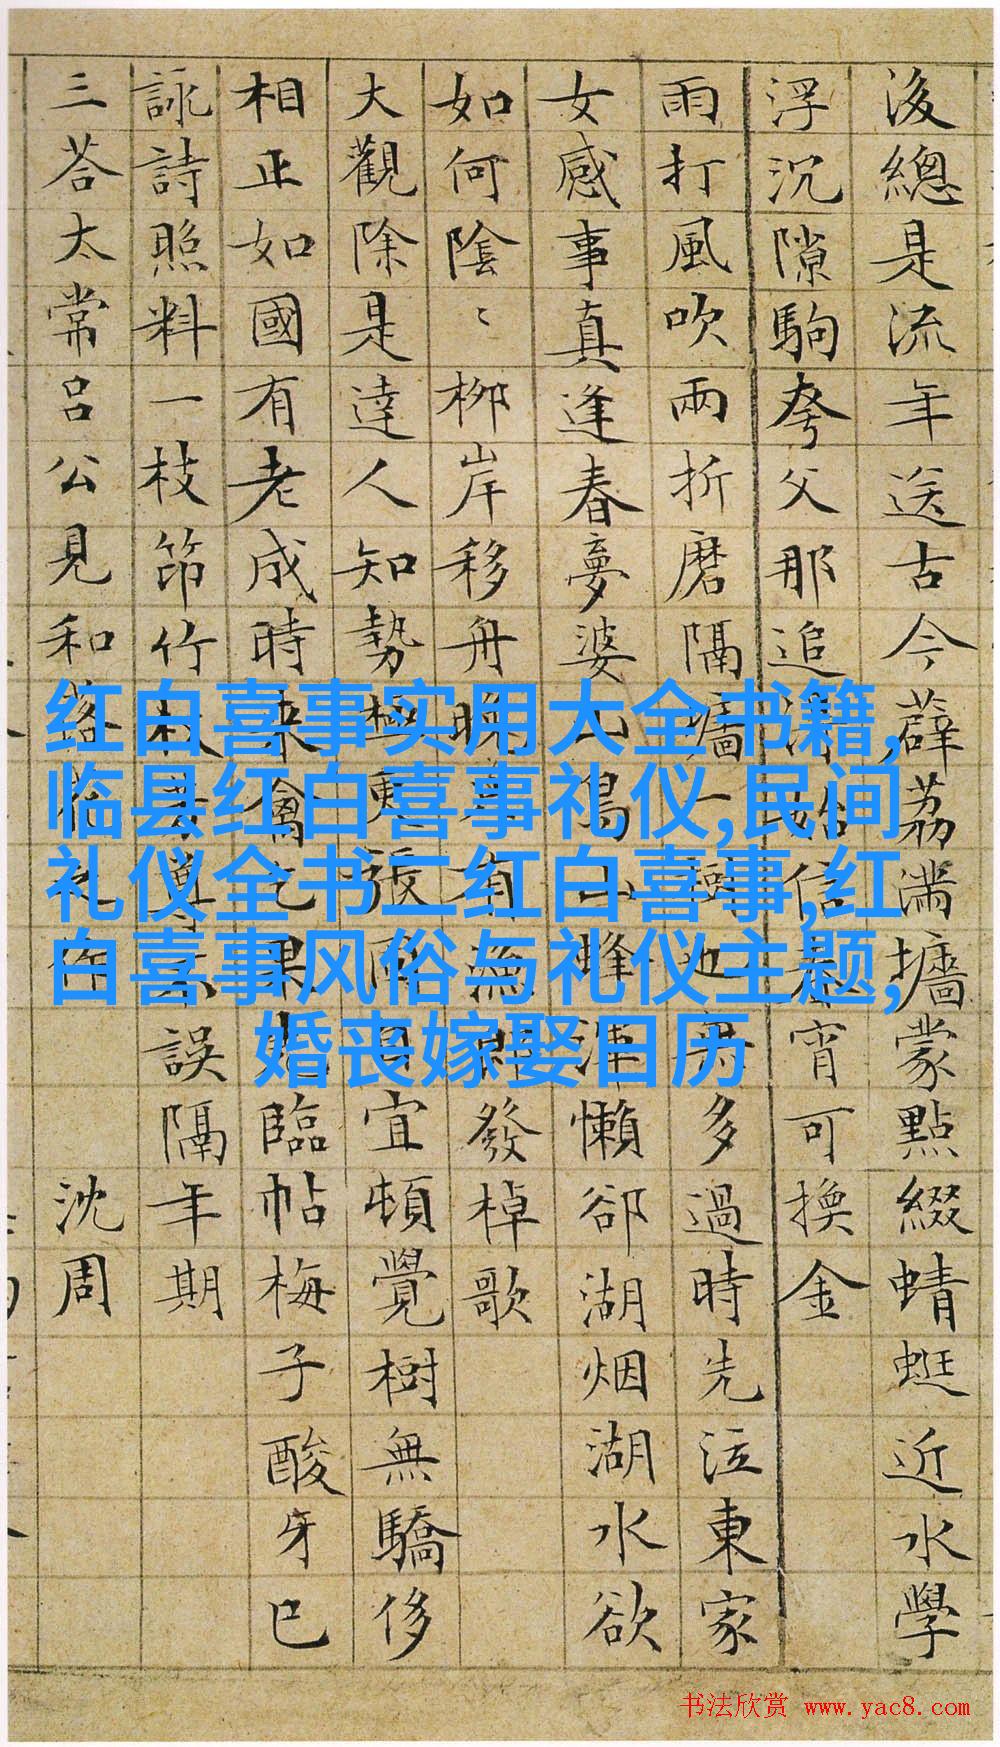 後總是流年送古今薜荔滿墻蒙點綴蜻蜓近水學
浮沉隙駒夸父那追始信宵可換金
雨打風吹兩折磨隔墻一樹也無多過時先泣東家
女感事真逢春夢婆鳥蜂渾懶郤湖烟湖水欲
如何陰〻柳岸移舟晚有漁郎發棹歌
大觀除是達人知勢極張宜頓覺樹無驕侈
相正如國有老成時禽果臨帖梅子酸牙已
詠詩照料一枝笻竹杖尊誤隔年期
三荅太常呂公見和落花之作 沈周
红白喜事实用大全书籍,
临县红白喜事礼仪,民间
礼仪全书二红白喜事,红
白喜事风俗与礼仪主题,
婚丧嫁娶日历
书法欣赏 www.yac8.com